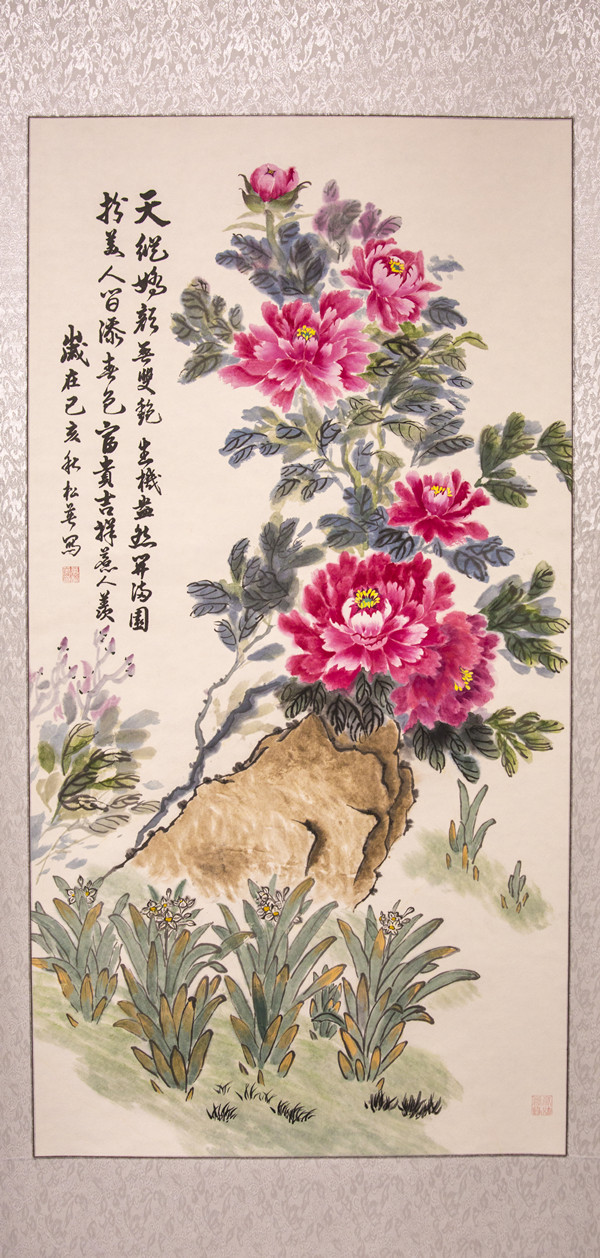 天縱嬌顏無雙艷 生機盎然開滿園
於美人間添春色 富貴吉祥惹人羨
歲在己亥秋 松英寫